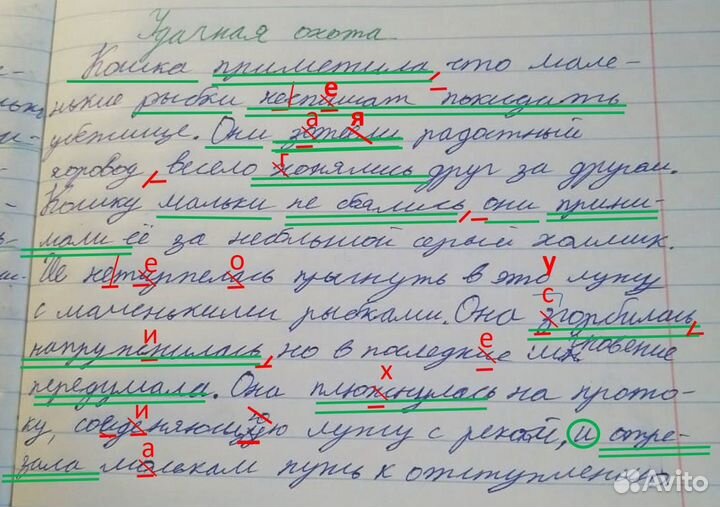 Удачная охота
Кошка приметила, что мале-
нькие рыбки не спешат покидать
убежище. Они затеяли радостный
хоровод, весело гонялись друг за другом.
Кошку мальки не боялись, они прини-
мали её за небольшой серый холмик.
Ей не терпелось прыгнуть в эту лужу
с маленькими рыбками. Она сгорбилась,
напружинилась, но в последнее мгновение
передумала. Она плюхнулась на прото-
ку, соединяющую лужу с рекой, и отре-
зала малькам путь к отступлению.
Avito